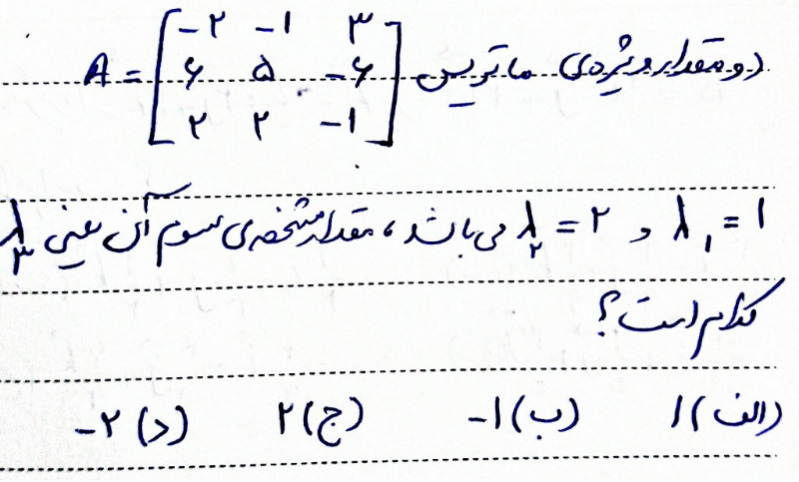 دو مقدار ویژه‌ی ماتریس A = [
-۲ -۱ ۳
۶ ۵ -۶
۲ ۲ -۱
]
λ₁ = ۱ و λ₂ = ۲ می‌باشد، مقدار مشخصه‌ی سوم آن یعنی λ₃
کدام است؟
الف) ۱ ب) -۱ ج) ۲ د) -۲